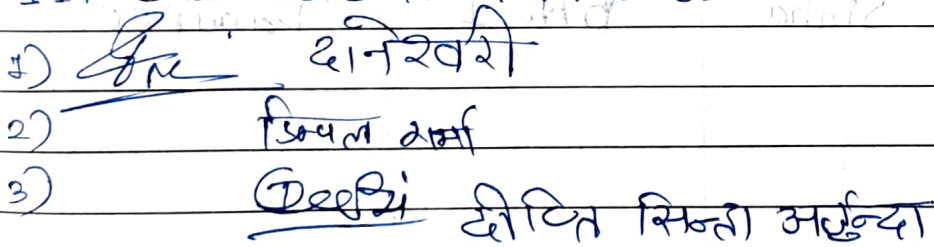 1) दानेश्वरी
2) डिम्पल शर्मा
3) Deepti दीप्ति सिन्हा अर्जुन्दा